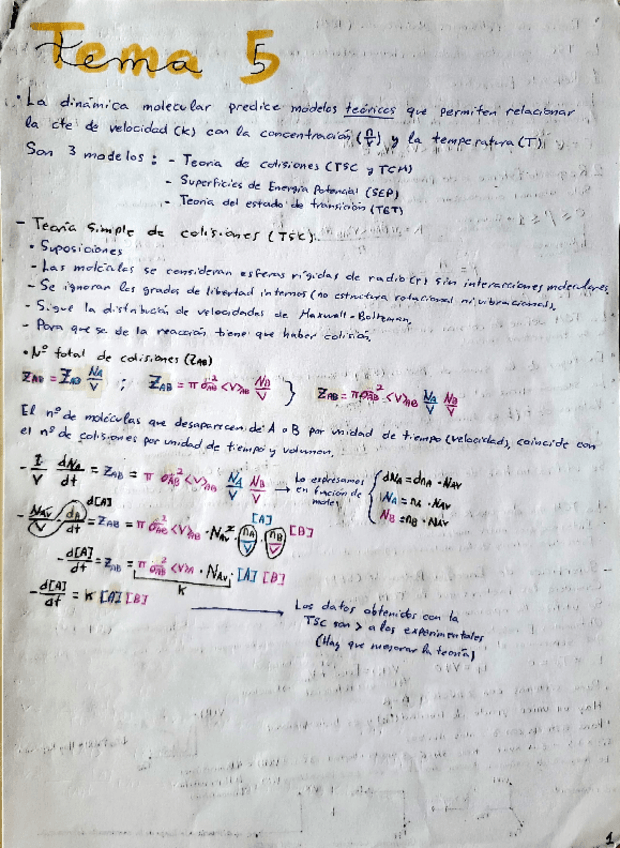 Tema 5
• La dinámica molecular predice modelos teóricos que permiten relacionar
la cte de velocidad (k) con la concentración (n/V) y la temperatura (T)
Son 3 modelos: - Teoría de colisiones (TSC y TCM)
- Superficies de Energía Potencial (SEP)
- Teoría del estado de transición (TET)
- Teoría Simple de colisiones (TSC).
• Suposiciones
- Las moléculas se consideran esferas rígidas de radio (r) sin interacciones moleculares.
- Se ignoran los grados de libertad internos (no estructura rotacional ni vibracional).
- Sigue la distribución de velocidades de Maxwell-Boltzman.
- Para que se de la reacción tiene que haber colisión.
• Nº total de colisiones (Z_AB)
Z_AB = Z_AB N_A/V ; Z_AB = π σ_AB² <V>_AB N_B/V } Z_AB = π σ_AB² <V>_AB N_A/V N_B/V
El nº de moléculas que desaparecen de A o B por unidad de tiempo (velocidad), coincide con
el nº de colisiones por unidad de tiempo y volumen.
- 1/V dN_A/dt = Z_AB = π σ_AB² <V>_AB N_A/V N_B/V → Lo expresamos en función de moles { dN_A = dn_A · N_AV
N_A = n_A · N_AV
N_B = n_B · N_AV
d[A]
- N_AV/V · dn/dt = Z_AB = π σ_AB² <V>_AB · N_AV² · n_A/V · n_B/V [A] [B]
- d[A]/dt = Z_AB = π σ_AB² <V>_A · N_AV · [A] [B]
k
- d[A]/dt = k [A] [B] → Los datos obtenidos con la
TSC son > a los experimentales
(Hay que mejorar la teoría)
1